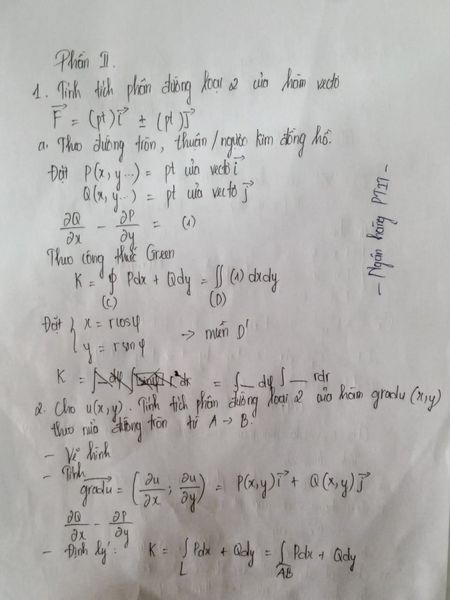 Phần II.
1. Tính tích phân đường loại 2 của hàm vectơ
F⃗ = (pt)i⃗ ± (pt)j⃗
a. Theo đường tròn, thuận/ngược kim đồng hồ.
Đặt P(x, y...) = pt của vectơ i⃗
Q(x, y...) = pt của vectơ j⃗
∂Q/∂x - ∂P/∂y = (1)
Theo công thức Green
K = ∮(C) Pdx + Qdy = ∬(D) (1) dxdy
Đặt { x = rcosφ
y = rsinφ -> miền D'
K = = ∫_ dφ ∫ __ rdr
2. Cho u(x,y). Tính tích phân đường loại 2 của hàm gradu (x,y)
theo nửa đường tròn từ A → B.
- Vẽ hình
- Tính
gradu⃗ = (∂u/∂x ; ∂u/∂y) = P(x,y)i⃗ + Q(x,y)j⃗
∂Q/∂x - ∂P/∂y
- Định lý: K = ∫L Pdx + Qdy = ∫AB Pdx + Qdy
- Ngân hàng PTIT -